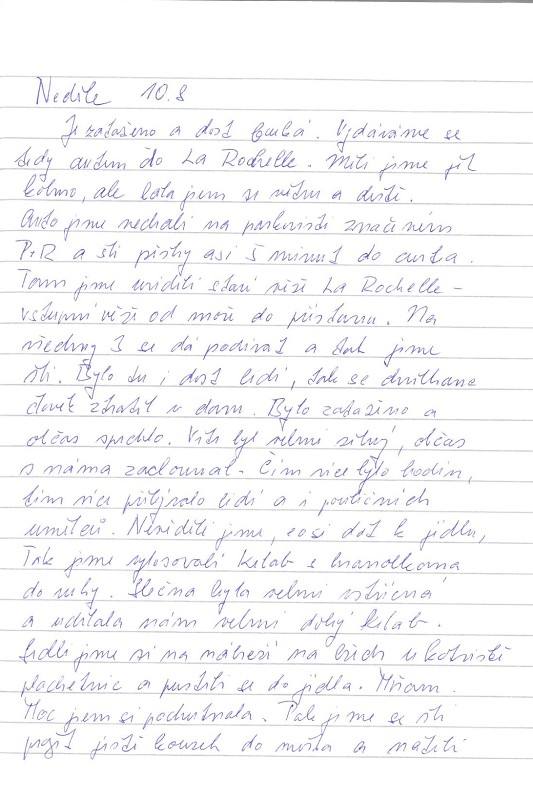 Neděle 10.8
Je zataženo a dost fouká. Vydáváme se
tedy autem do La Rochelle. Měli jsme jít
ale bála jsem se větru a deště.
Auto jsme nechali na parkovišti značeném
P+R a šli pěšky asi 5 minut do centra.
Tam jsme uviděli staré věže La Rochelle -
vstupní věži od moře do přístavu. Na
všechny 3 se dá podívat a tak jsme
šli. Bylo tu i dost lidí, tak se
člověk ztratil v davu. Bylo zataženo a
občas sprchlo. Vítr byl velmi silný, občas
s náma zaclouval. Čím více bylo hodin,
tím více přibývalo lidí a i pouličních
umělců. Nevěděli jsme, co si dát k jídlu,
Tak jsme vylosovali kebab s hranolkama
do ruky. Slečna byla velmi vstřícná
a udělala nám velmi dobrý kebab.
Sedli jsme si na nábřeží na břeh u kotviště
plachetnic a pustili se do jídla. Mňam.
Moc jsem si pochutnala. Pak jsme se šli
projít ještě kousek do města a našli